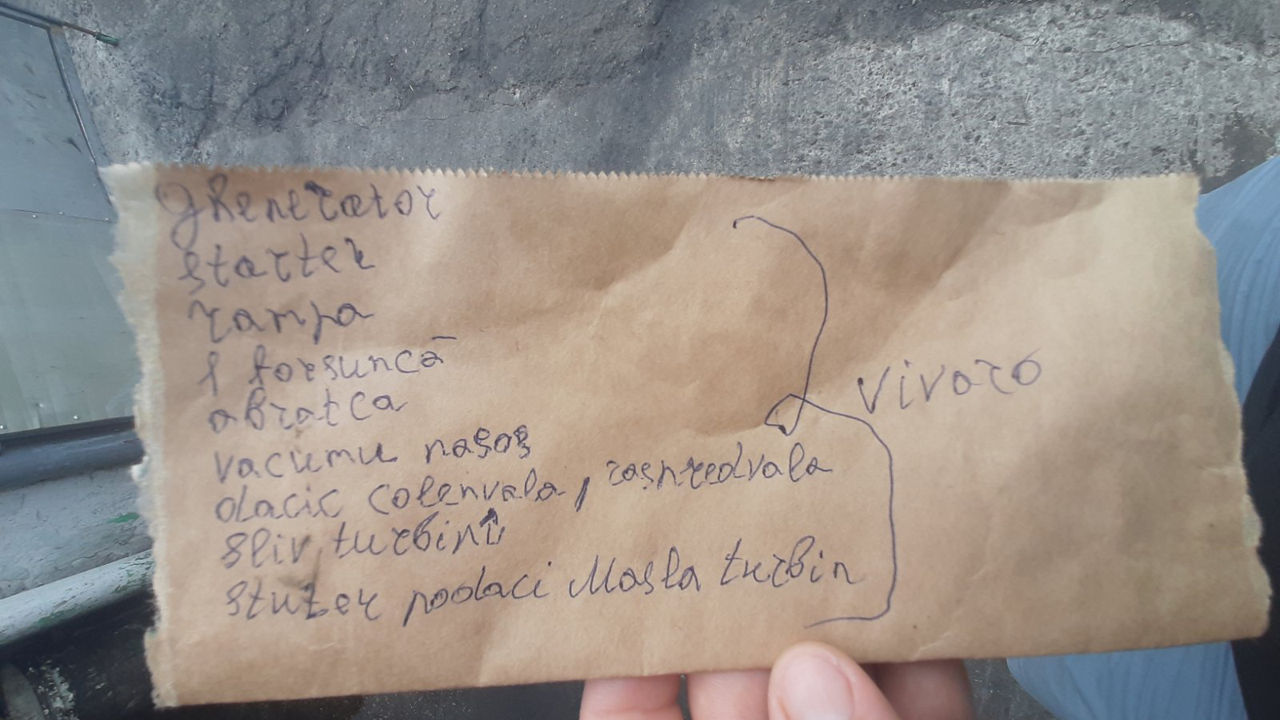 Ghenerator
starter
rampa
1 forsuncă
abratca
vacumu nasos
dacic colenvala, raspredvala
sliv turbinî
stuțer podaci Masla turbin
Vivaro